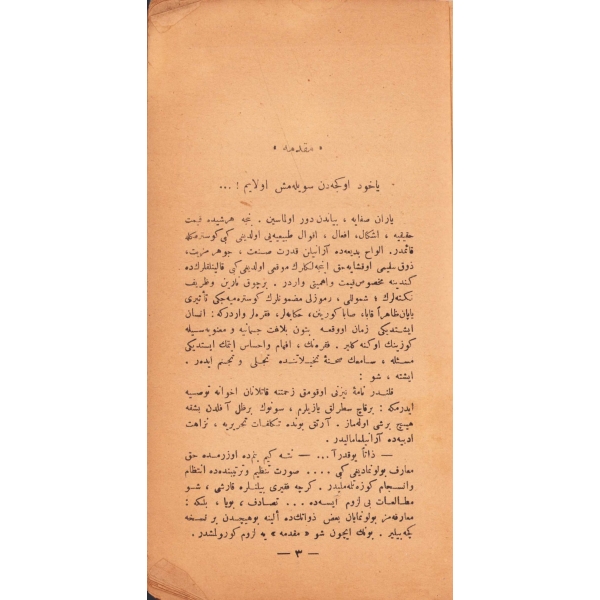 « مقدمه »
یاخود اوکجه‌دن سویله‌مش اولایم ! ...
یاران صفایه ، بیاندن دور اولماسین . بنجه هر شیده قیمت
حقیقیه ، اشکال ، افعال ، اقوال طبیعیه‌یی اولدیغی کبی کوسترمکله
قائمدر . الواح بدیعه‌ده آرانیلن قدرت صنعت ، جوهر مزیت ،
ذوق سلیمی اوقشایه‌جق اینجه‌لکلرك موقعی اولدیغی کبی قالینلقلرك‌ده
کندینه مخصوص قیمت واهمیتی واردر . برچوق نازین وظریف
نکته‌لرك ؛ شموللی ، رموزلی مضمونلرك کوستره‌میه‌جکی تأثیری
بایان ظاهراً قابا ، صابا کورینن ، حکایه‌لر ، فقره‌لر واردرکه : انسان
ایشتدیکی زمان اووقعه بتون بلاغت جسمانیه و معنویه‌سیله
کوزینك اوکنه کلیر . فقره‌نك ، افهام واحساس ایتمك ایستدیکی
مسئله ، سامعك صحنهٔ تخیلاتنده تجلی و تجسم ایدر .
ایشته ، شو :
قلندر نامهٔ نیزنی اوقومق زحمتنه قاتلانان اخوانه توصیه
ایدرمکه : برقاچ سطرلق یازیلرم ، سونوك برظل آفلدن بشقه
هیچ برشی اوله‌ماز . آرتق بونده تکلفات تحریریه ، نزاهت
ادبیه‌ده آرانیلمامالیدر .
— ذاتاً یوقدرآ ... — نته کیم بنم‌ده اوزرمده حق
معارف بولونمادیغی کبی .... صورت تنظیم وترتیبنده‌ده انتظام
وانسجام کوزه‌تلمه‌ملیدر . کرچه فقیری بیلنلره قارشی ، شو
مطالعات بی لزوم ایسه‌ده ... تصادف ، بویا ، بلکه :
معارفه‌مز بولونمایان بعض ذواتك‌ده ألینه بوهیچدن بر نسخه
یکه‌بیلیر . بونك ایچون شو « مقدمه » یه لزوم کورولشدر .
— ٣ —